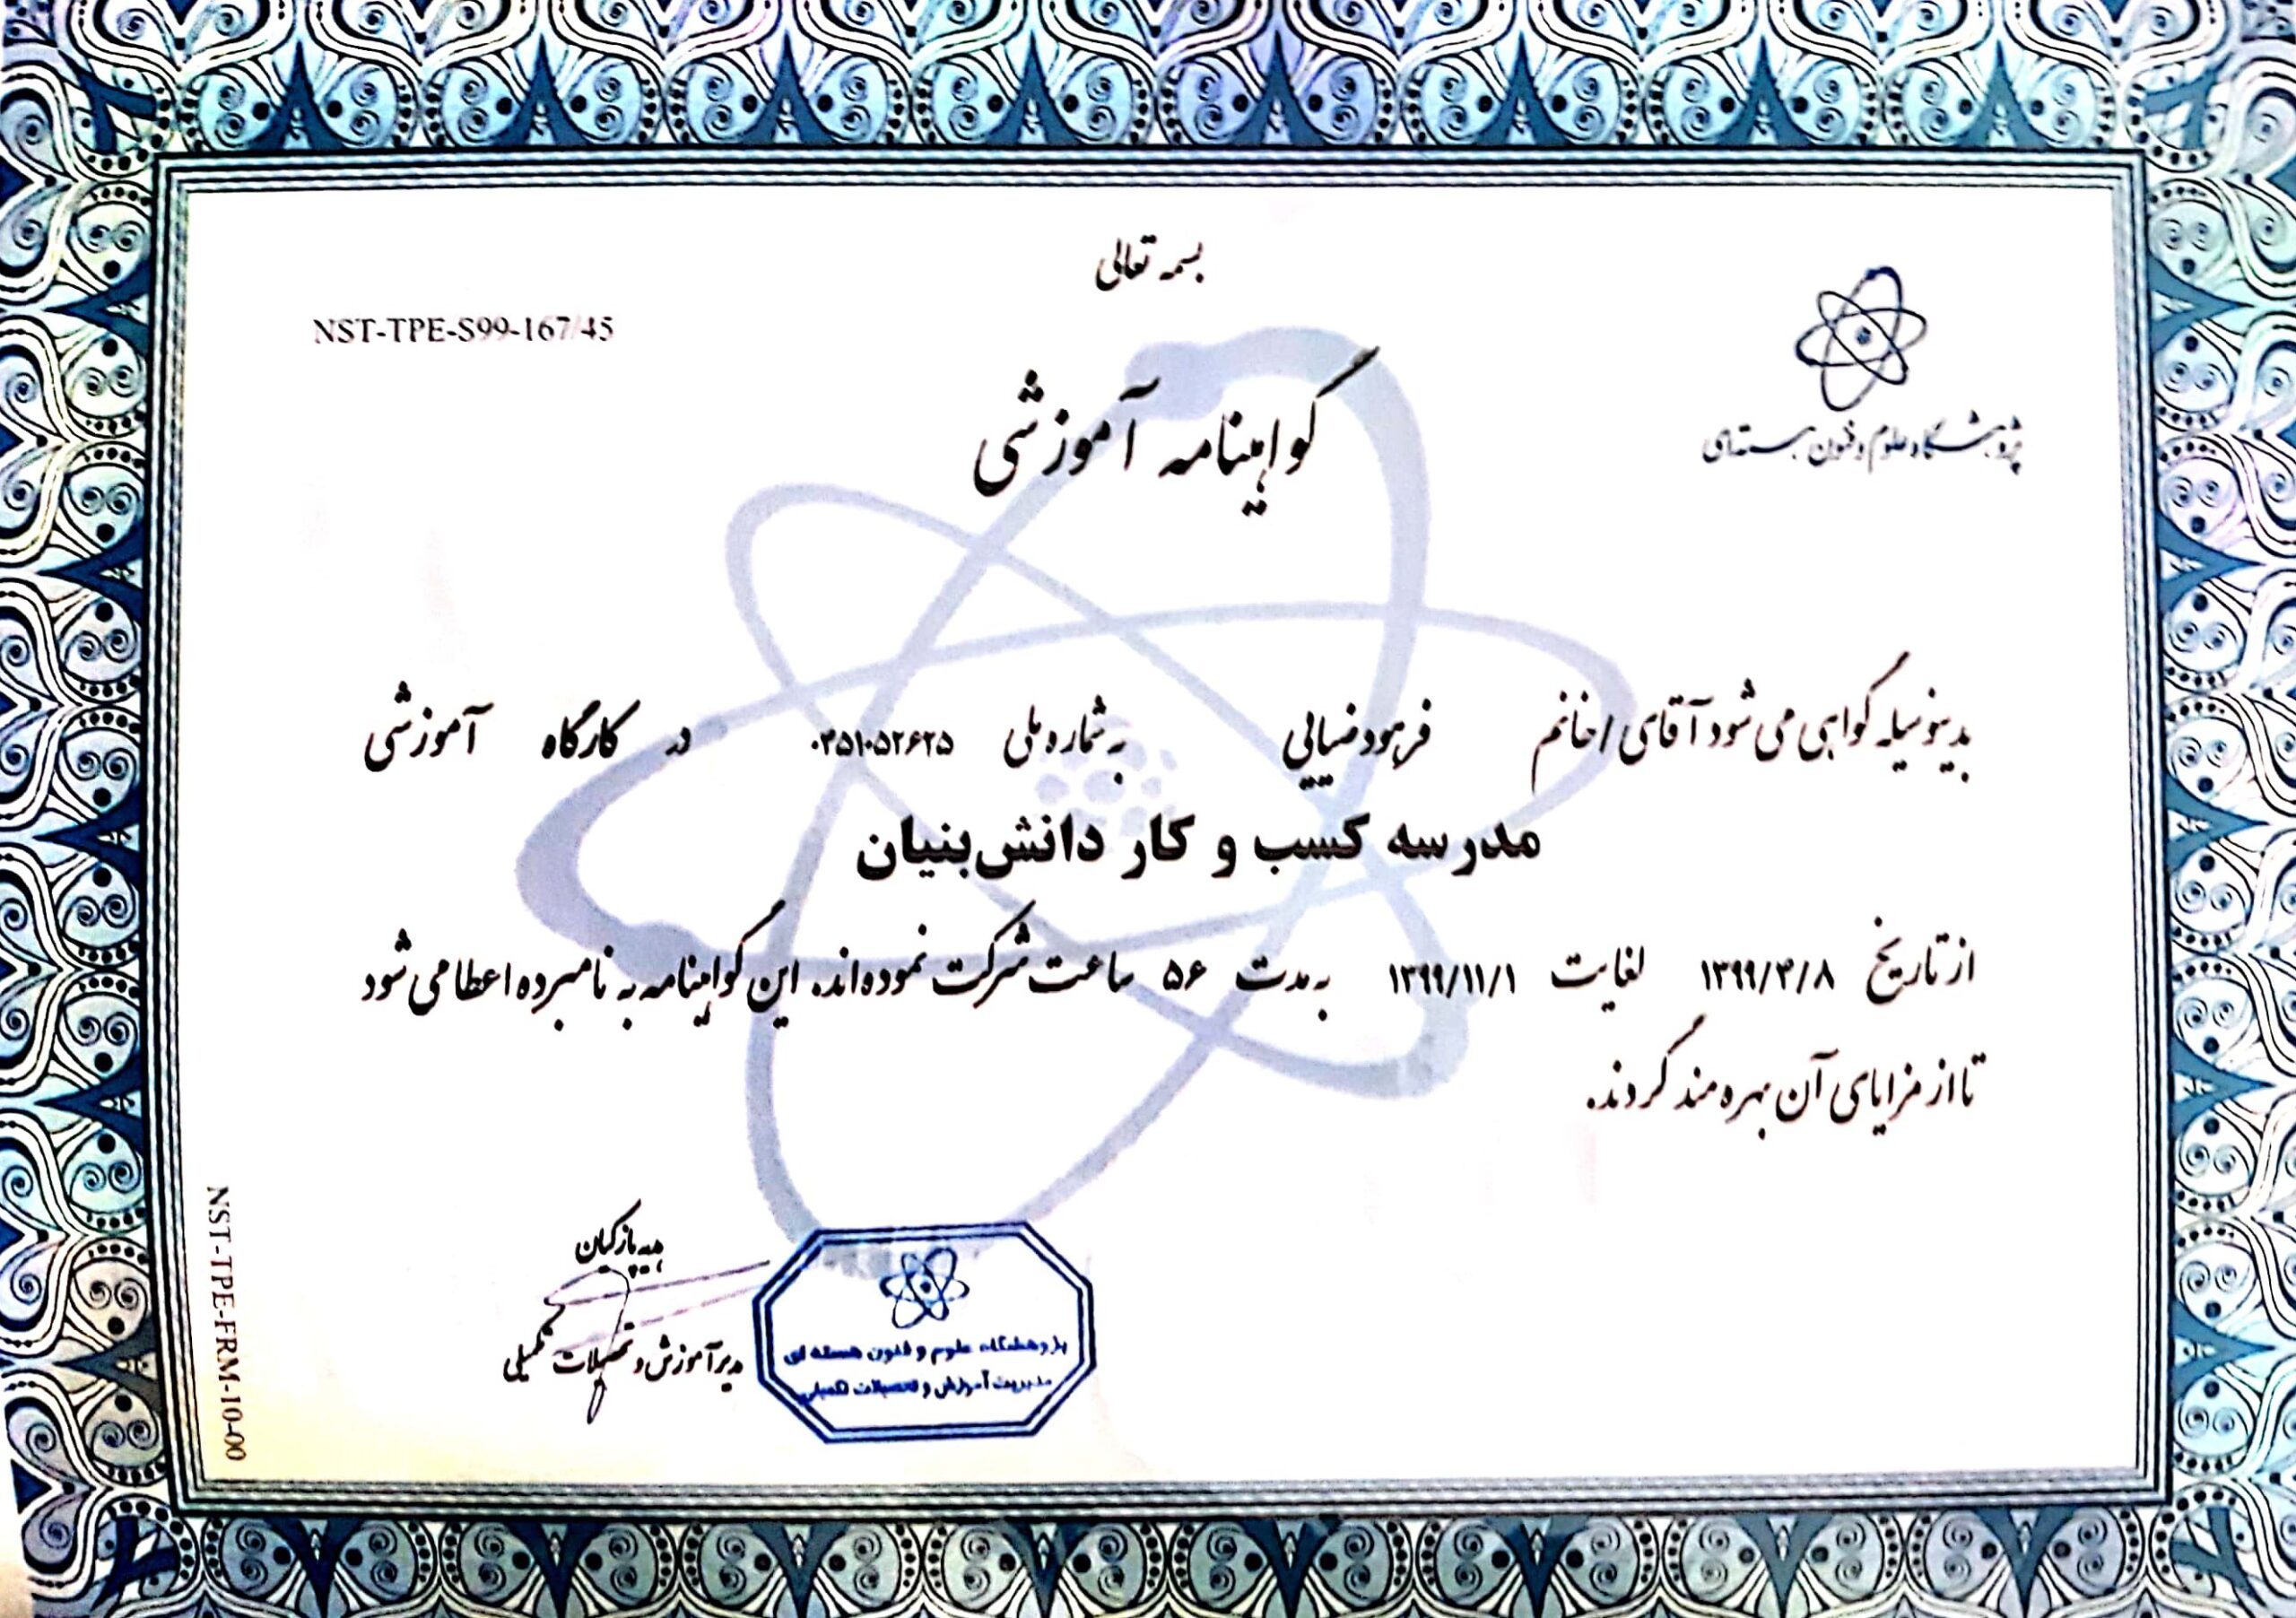 بسمه تعالی
NST-TPE-S99-167/45
پژوهشگاه علوم و فنون هسته‌ای
گواهینامه آموزشی
بدینوسیله گواهی می شود آقای / خانم فرهود ضیایی به شماره ملی ۰۴۵۱۰۵۲۶۲۵ در کارگاه آموزشی
مدرسه کسب و کار دانش‌بنیان
از تاریخ ۱۳۹۹/۴/۸ لغایت ۱۳۹۹/۱۱/۱ به مدت ۵۶ ساعت شرکت نموده‌اند. این گواهینامه به نامبرده اعطا می شود
تا از مزایای آن بهره مند گردند.
بازرگیان
مدیر آموزش و تحصیلات تکمیلی
پژوهشگاه علوم و فنون هسته ای
مدیریت آموزش و تحصیلات تکمیلی
NST-TPE-FRM-10-00